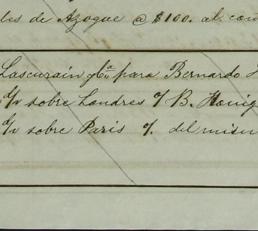 les de Azogue @ $100. al con
Lascurain y Cª para Bernardo
d/v sobre Londres o/ B. Honig
d/v sobre Paris o/. del mism